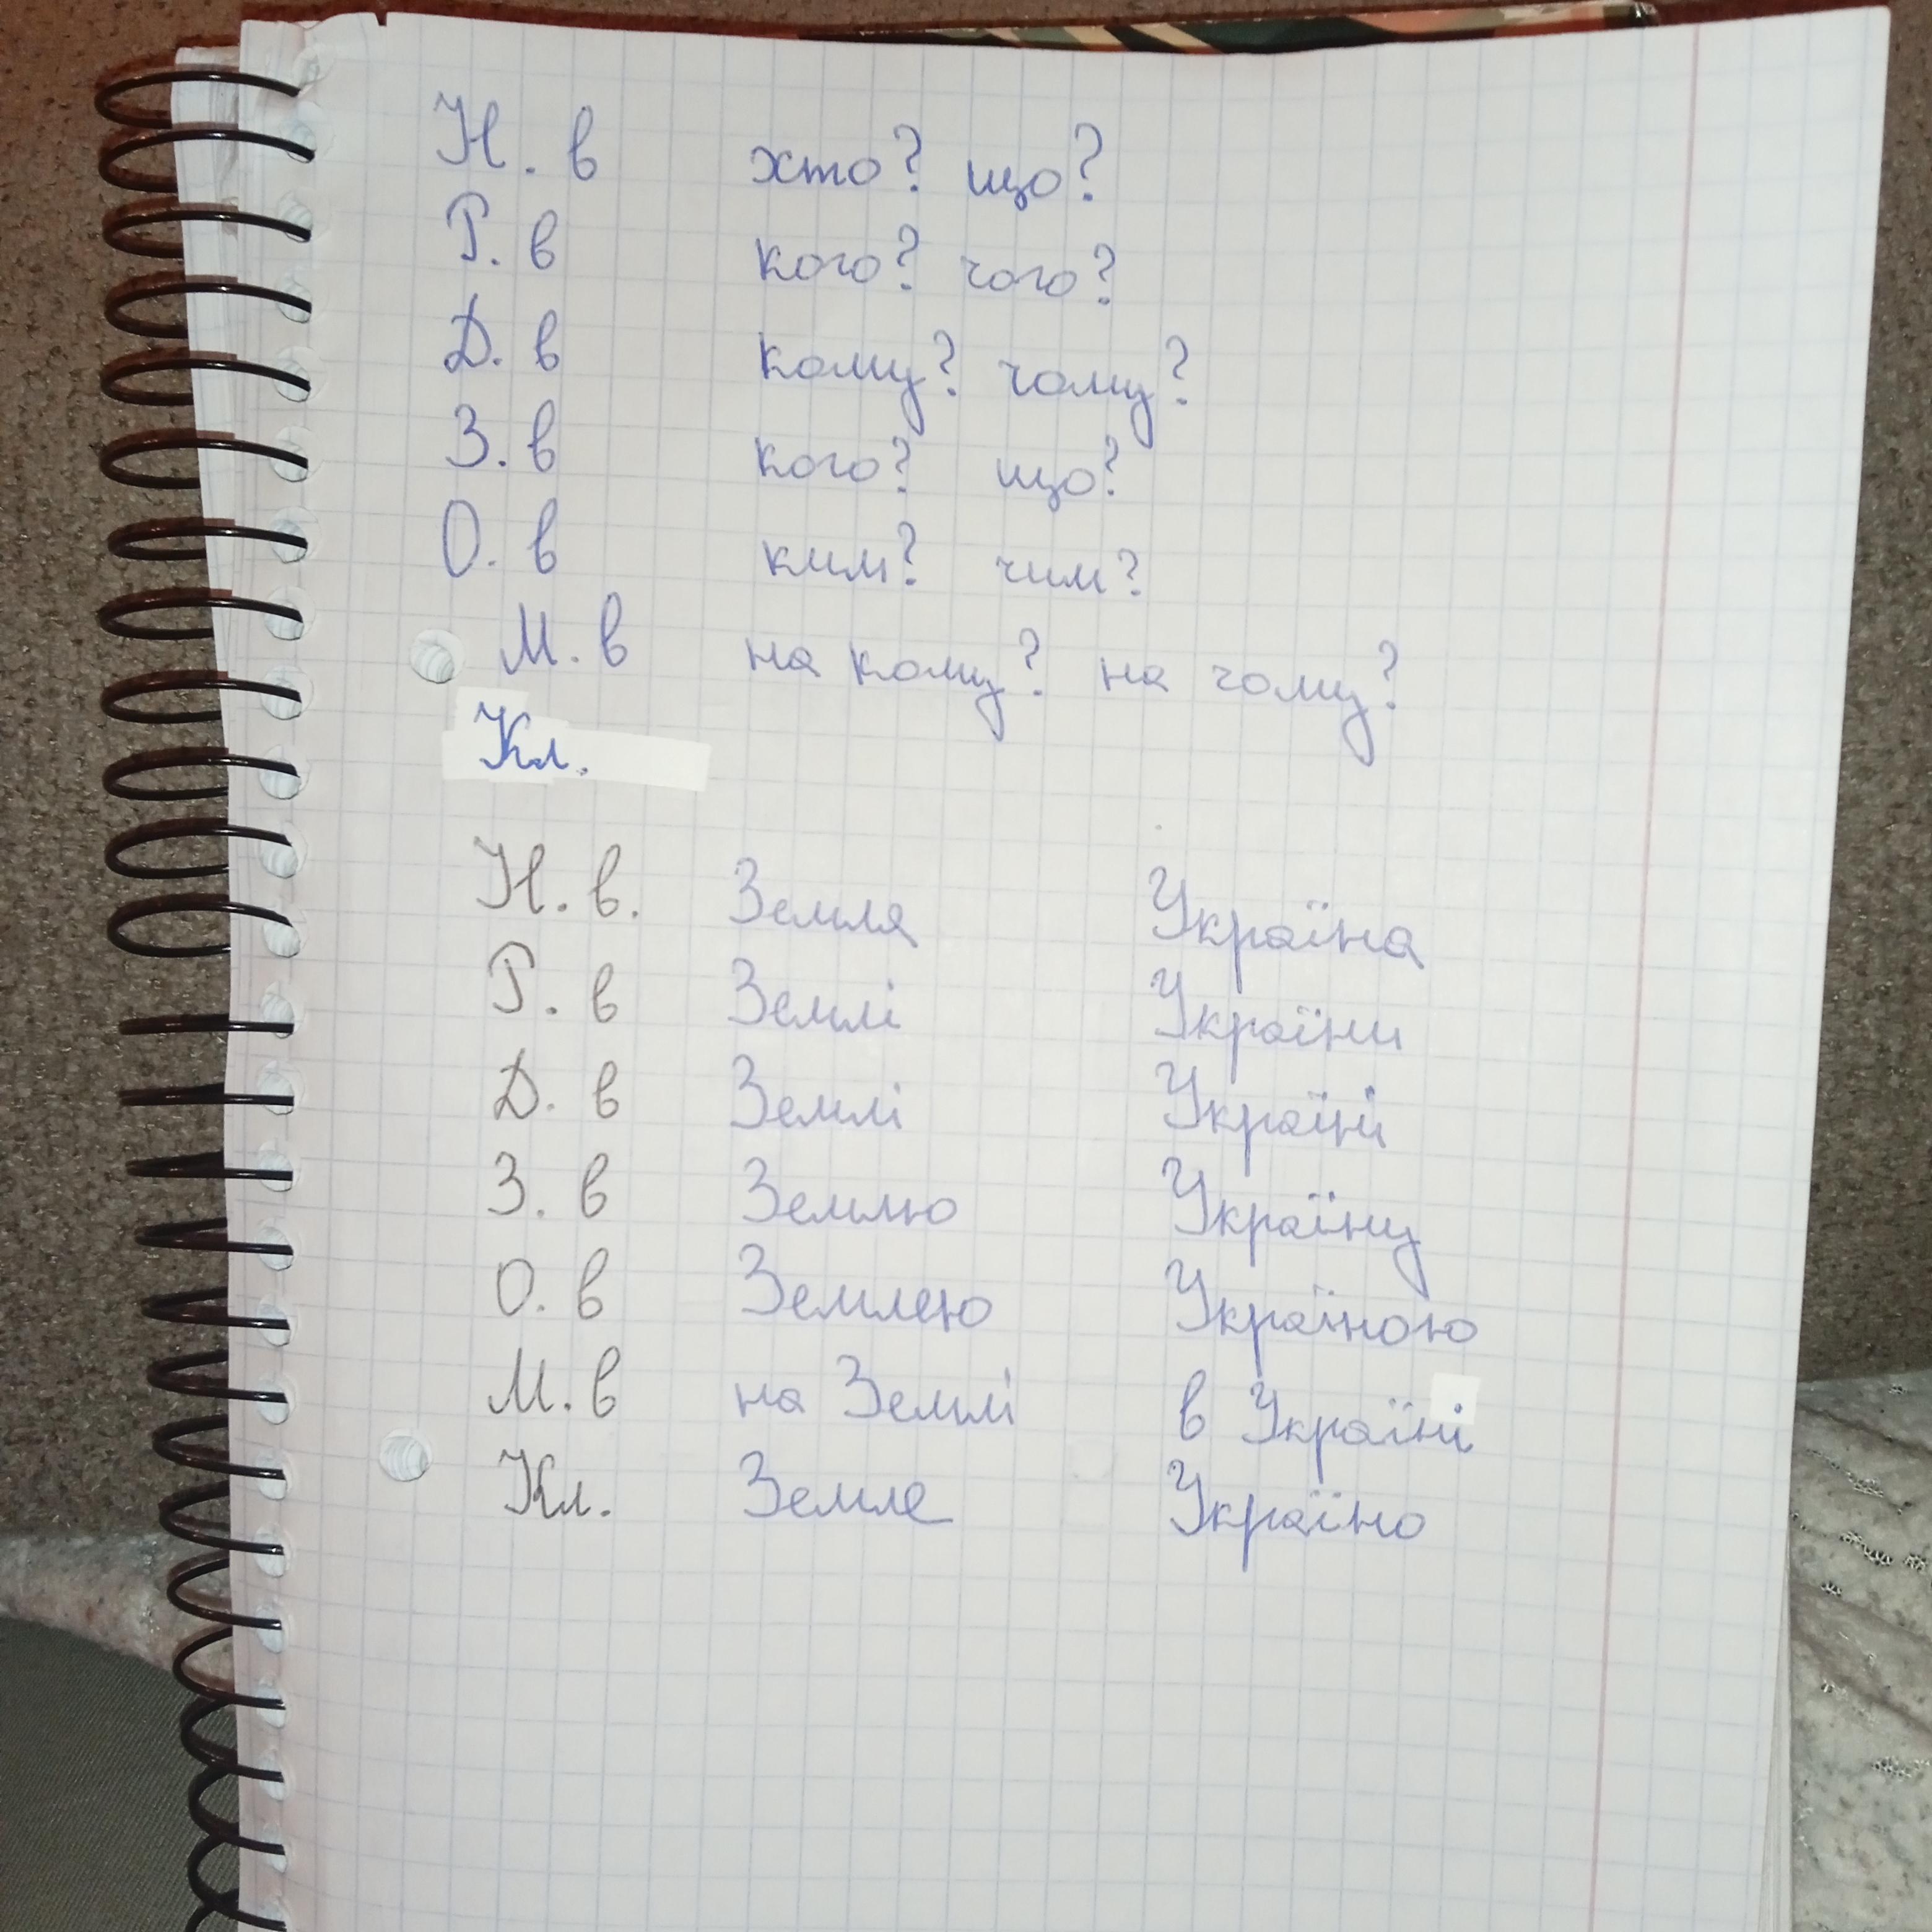 Н. в хто? що?
Р. в кого? чого?
Д. в кому? чому?
З. в кого? що?
О. в ким? чим?
М. в на кому? на чому?
Кл.
Н. в. Земля Україна
Р. в Землі України
Д. в Землі Україні
З. в Землю Україну
О. в Землею Україною
М. в на Землі в Україні
Кл. Земле Україно